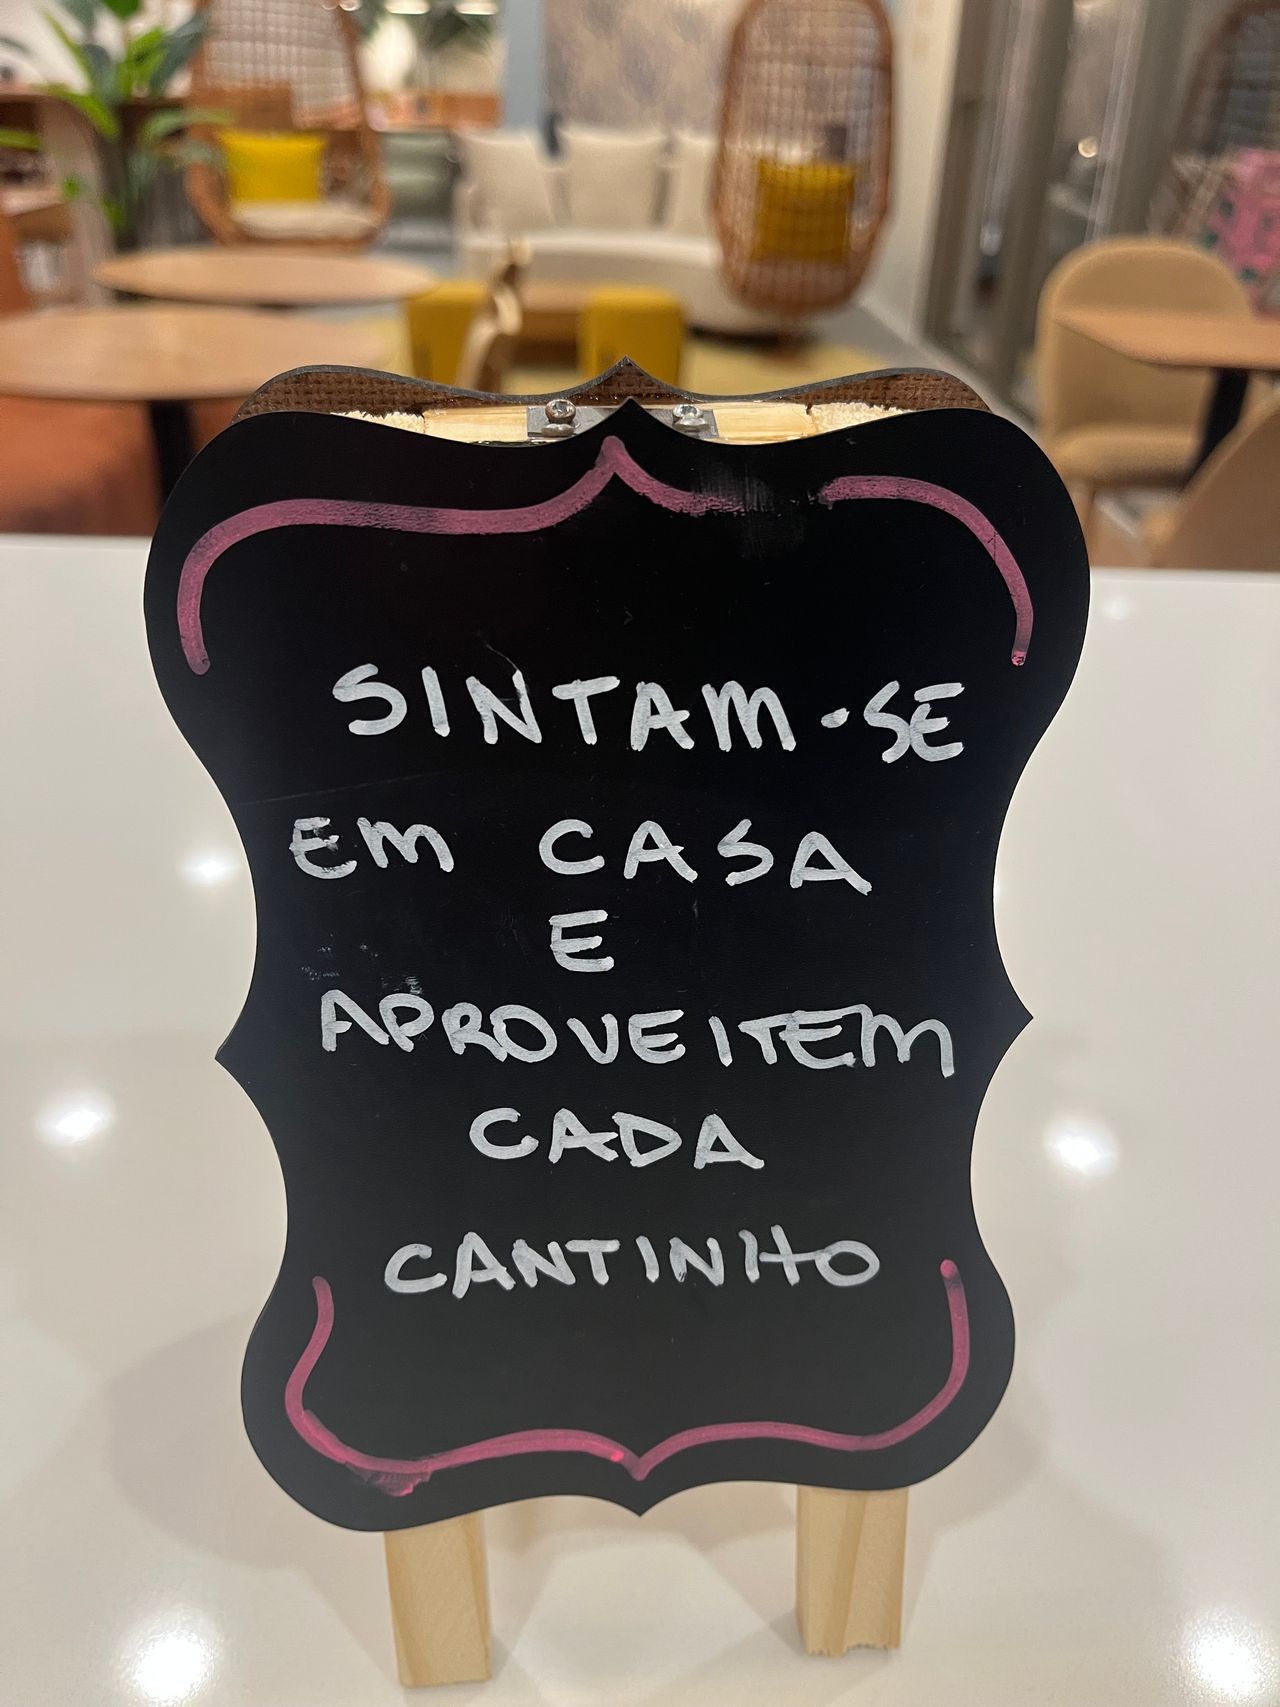 SINTAM-SE
EM CASA
E
APROVEITEM
CADA
CANTINHO